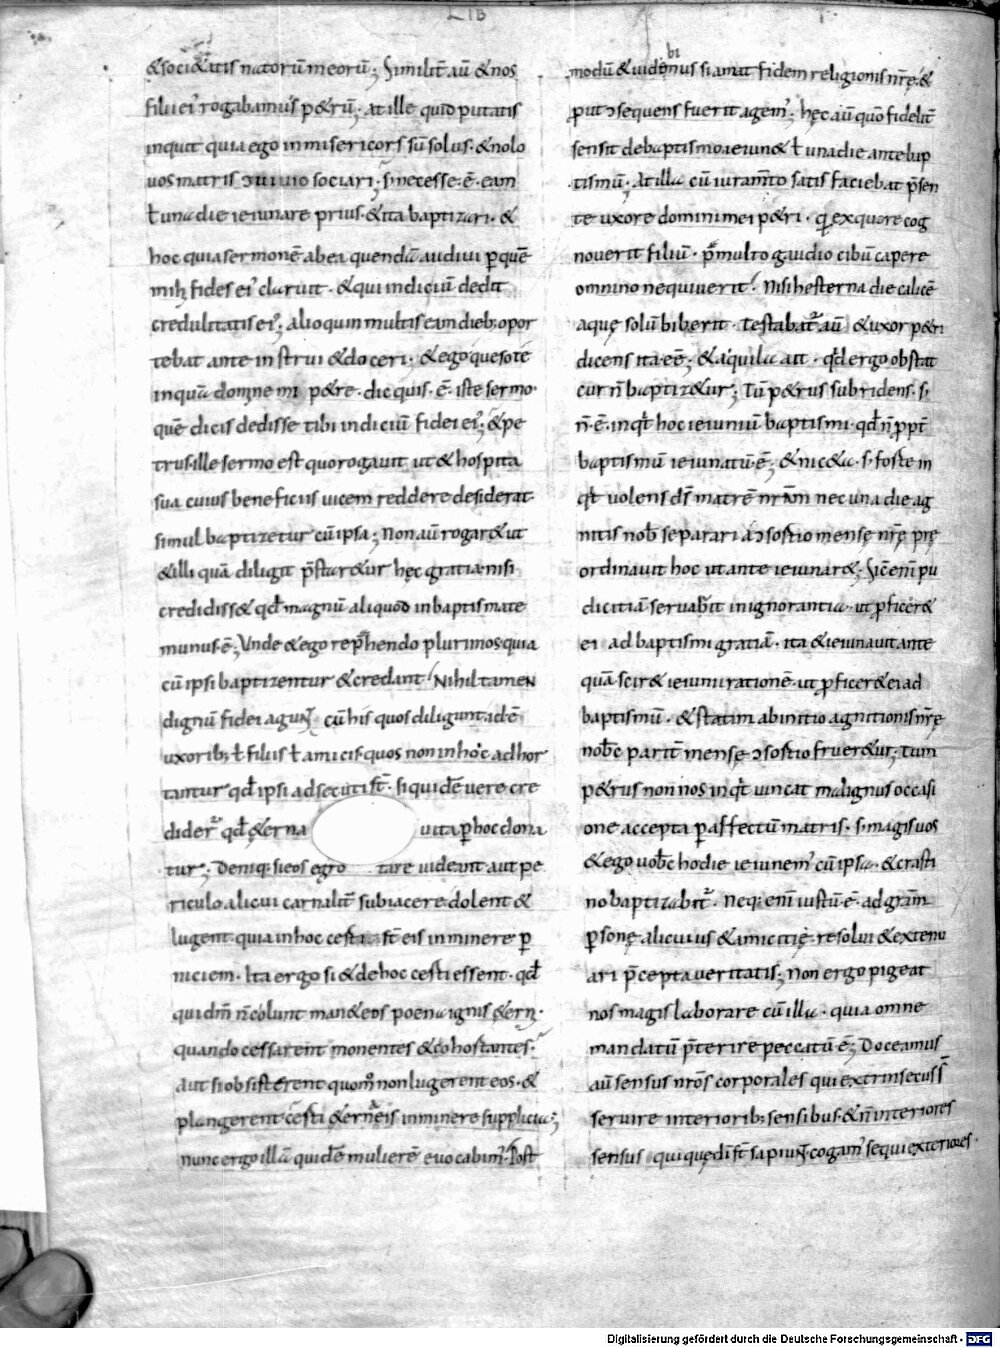 LIB
&soci&atis natorū meorū; Similit̄ aū &nos
filii ei' rogabamus p&rū; at ille quid putatis
inquit quia ego inmisericors sū solus. & nolo
uos matris ɔuiuio sociari; s; necesse. ē. eam
ł una die ieiunare prius. & ita baptizari. &
hoc quia sermonē abea quendā audiui p quē
mihi fides ei' claruit. & qui indiciū dedit
credulitatis ei'; alioquin multis eam dieb; opor
tebat ante instrui & doceri. & ego queso te
inquā domne mi p&re. dic quis. ē. iste sermo.
quē dicis dedisse tibi indiciū fidei ei'; & pe
trus ille sermo est quo rogauit ut & hospita
sua cuius beneficiis uicem reddere desiderat.
simul baptizetur cū ipsa; Non aū rogar& ut
& illi quā diligit p̄star&ur hęc gratia. nisi
credidiss& qd magnū aliquod inbaptismate
munus. ē; Unde & ego rep̄hendo plurimos. quia
cū ipsi baptizentur & credant Nihil tamen
dignū fidei agunt cū his quos diligunt. id. ē
uxorib; ł filiis ł amicis. quos non inhoc adhor
tantur qd ipsi adsecuti st̄. siquidē uere cre
dider̄ qd &erna uita p hoc dona
tur; Deniq; si eos egro tare uideant aut pe
riculo alicui carnalit̄ subiacere. dolent &
lugent. quia inhoc certi st̄ eis inminere p
niciem. Ita ergo si & dehoc certi essent. qd
qui dm̄ n̄ colunt man& eos poena ignis &erni.
quando cessarent monentes & cohortantes.
Aut si obsisterent quom̄ non lugerent eos. &
plangerent certi &erna eis inminere supplicia;
nunc ergo illā quidē mulierē euocabim'. Post
modū & uidebimus si amat fidem religionis nrę. &
put ɔsequens fuerit agem'; hęc aū quō fidelit̄
sensit debaptismo ieiun& ł una die ante bap
tismū. At illa cū iuram̄to satis faciebat p̄sen
te uxore domini mei p&ri. q̄ ex quo recog
nouerit filiū. p̄ multo gaudio cibū capere
omnino nequiuerit. Nisi hesterna die calicē
aquę solū biberit. testabat̄ aū & uxor p&ri
dicens ita eē; & aquila ait. qd ergo obstat
cur n̄ baptiz&ur; Tū p&rus subridens. s;
n̄. ē. inqt hoc ieiuniū baptismi. qd n̄ propt̄
baptismū ieiunatū. ē; & nic&a. s; forte in
qt uolens ds̄ matrē nrām nec una die ag
nitis nob̄ separari a ɔsortio mensę nrę prę
ordinauit hoc ut ante ieiunar&; Sic enī pu
dicitiā seruabit inignorantia. ut p ficer&
ei ad baptismi gratiā. ita & ieiunauit ante
quā scir& ieiunii rationē. ut p ficer& ei ad
baptismū. & statim abinitio agnitionis nrę
nobc̄ parit̄ mensę ɔsortio fruer&ur. tum
p&rus non nos inqt uincat malignus occasi
one accepta p affectū matris. s; magis uos
& ego uobc̄ hodie ieiunem' cū ipsa. & crasti
no baptizabit̄. Neq; enī iustū. ē. ad gram̄
p sonę alicuius & amicitię resolui & extenu
ari p̄cepta ueritatis; Non ergo pigeat
nos magis laborare cū illa. quia omne
mandatū p̄terire peccatū. ē; Doceamus
aū sensus nros̄ corporales qui extrinsecus s̄
seruire interiorib; sensibus. & n̄ interiores
sensus qui quę di st̄ sapiunt. cogam' sequi exteriores.
Digitalisierung gefördert durch die Deutsche Forschungsgemeinschaft - DFG